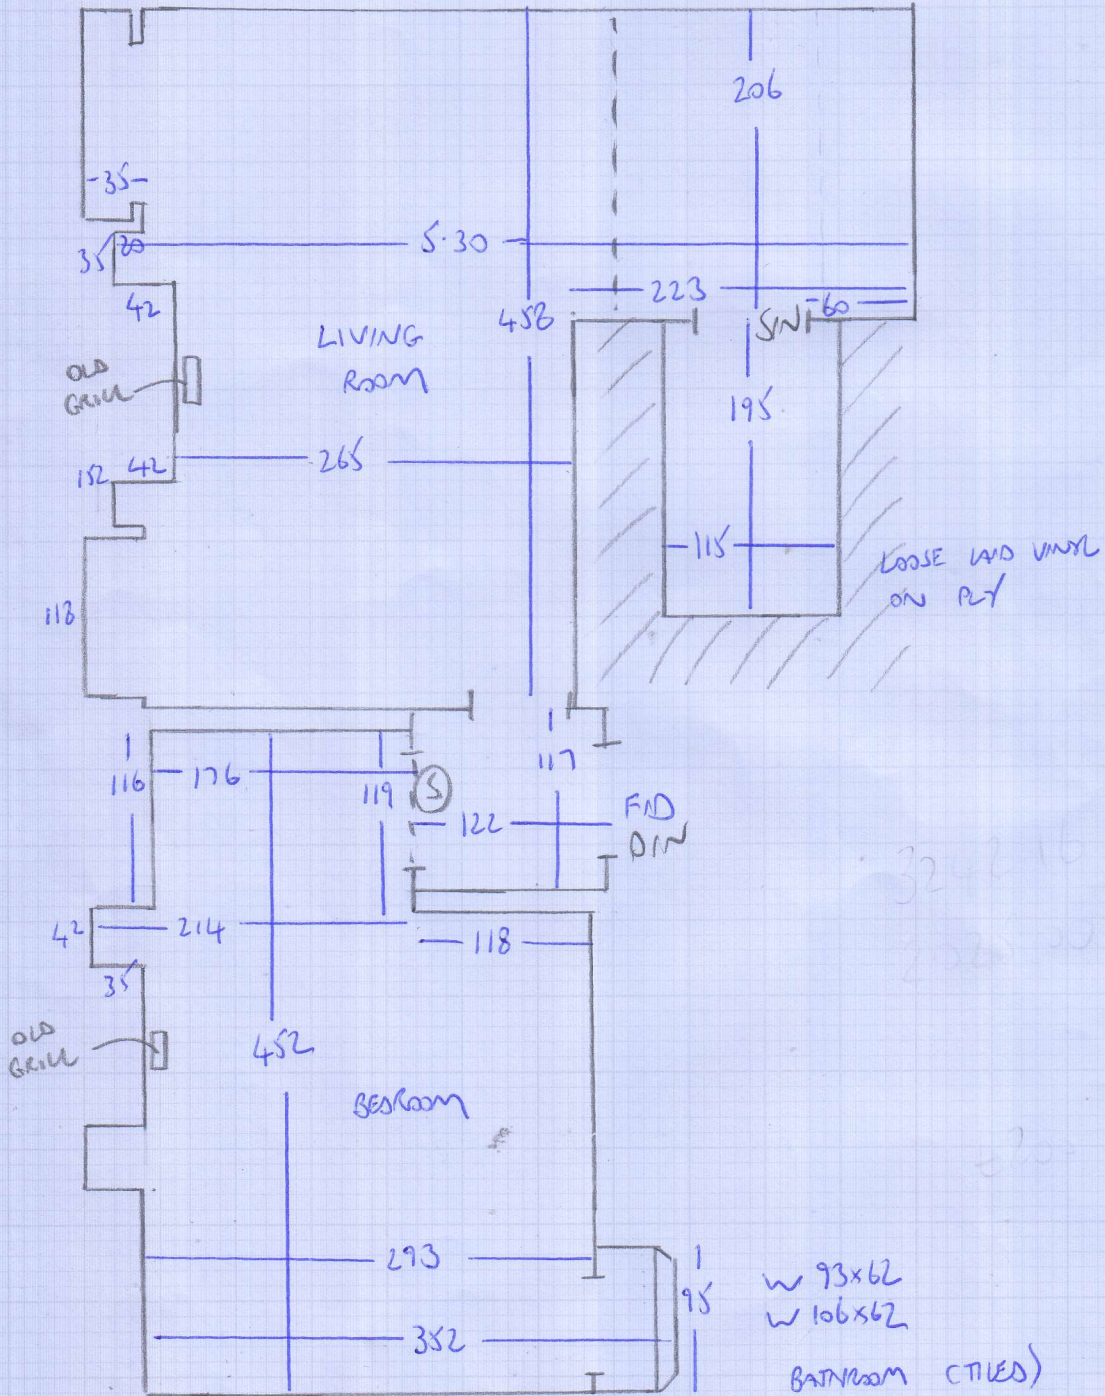 206
-35-
35 20
5.30
42
223
-60
458
S/N
LIVING
ROOM
OLD
GRILL
195
152 42
265
115
LOOSE LAID VINYL
ON PLY
118
116
176
119
S
117
122
F/D
D/N
42
214
118
35
OLD
GRILL
452
BEDROOM
293
95
W 93x62
W 106x62
352
BATHROOM (TILED)